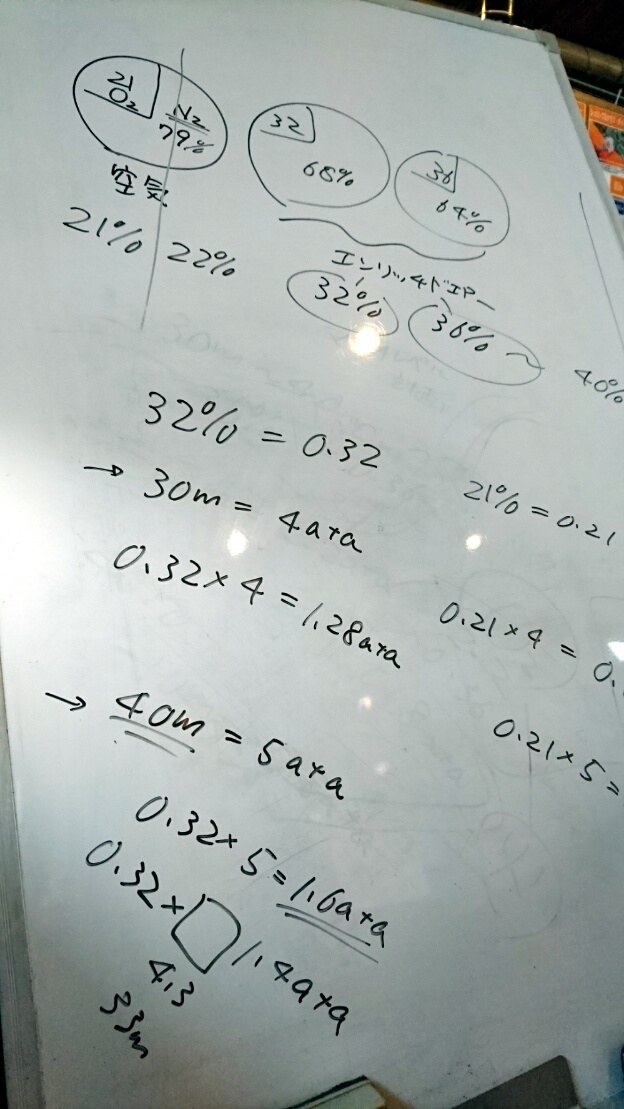 21
O₂
N₂
79%
32
68%
36
64%
空気
21% 22%
エンリッチドエアー
32% 36% ～ 40%
32% = 0.32
21% = 0.21
→ 30m = 4ata
0.32×4 = 1.28ata
0.21×4 = 0.
→ 40m = 5ata
0.21×5=
0.32×5=1.6ata
0.32×□ 1.4ata
4.3
33m